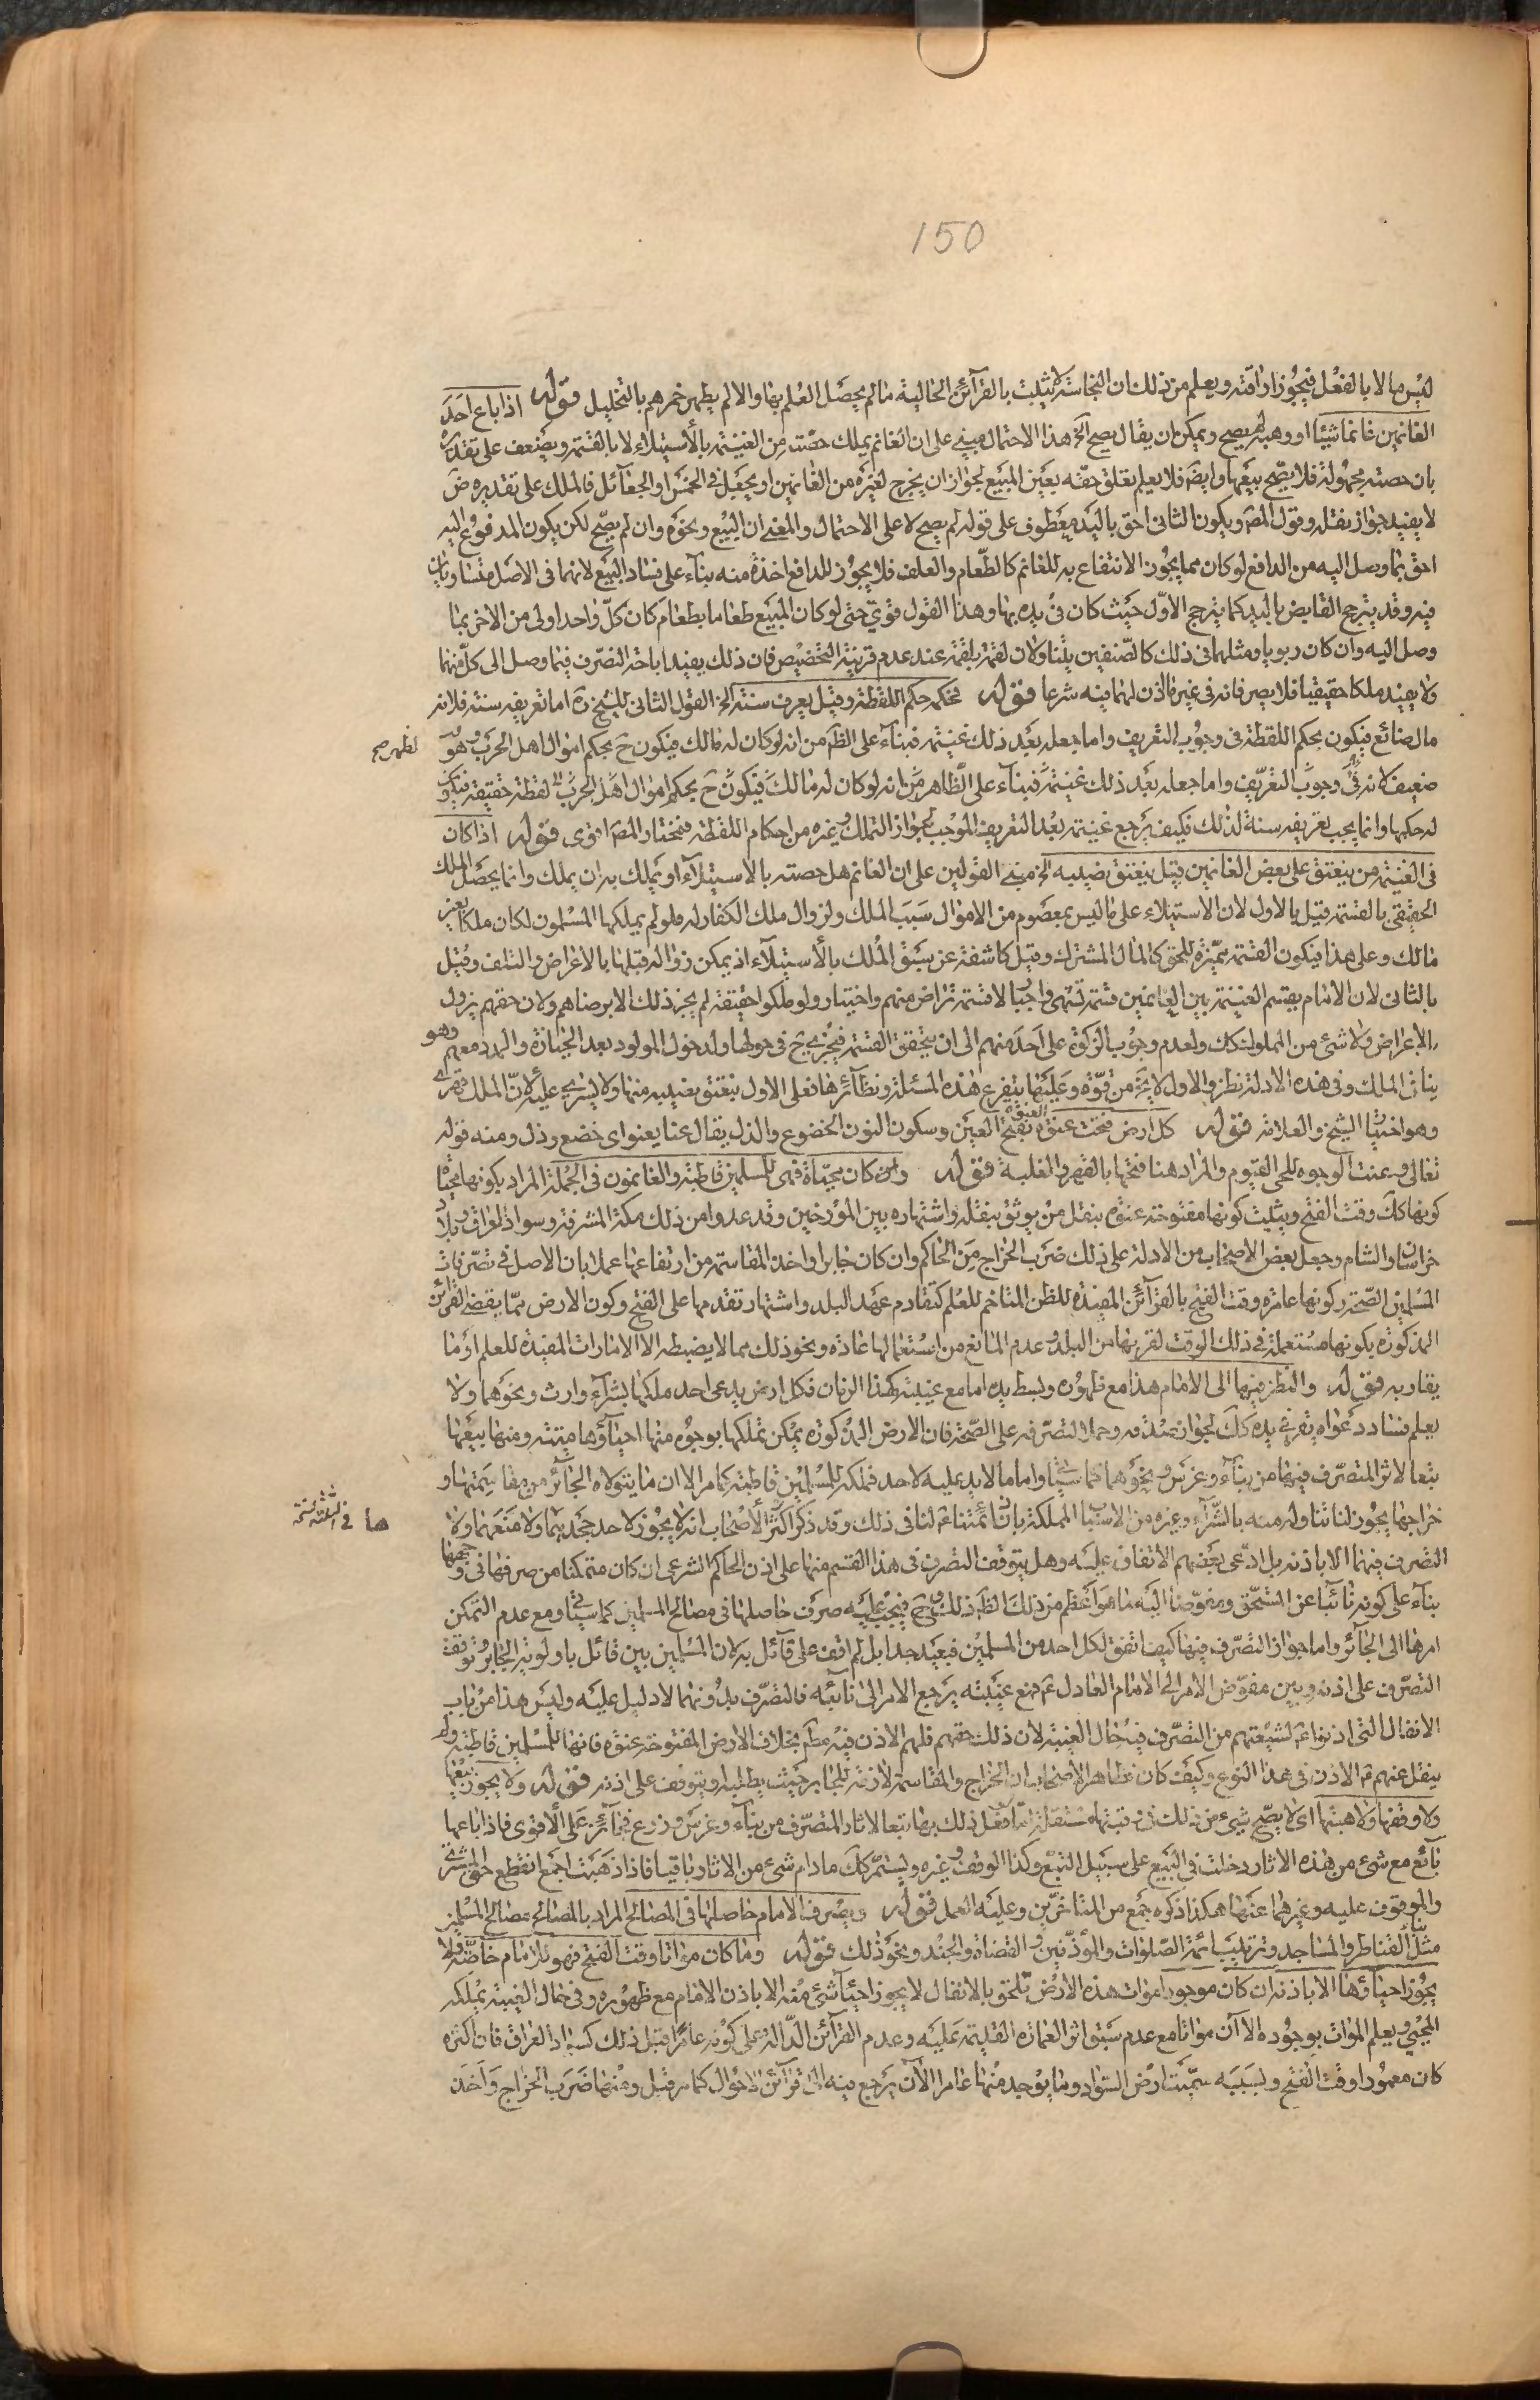 150
ليس مالا بالفعل فيجوز اراقته ويعلم من ذلك ان النجاسة لا يثبت بالقرآئن الحالية ما لم يحصل العلم بها والا لم يطهر خمرهم بالتخليل قوله اذا باع احد
الغانمين غانما شيئا او وهبه لم يصح ويمكن ان يقال يصح الخ هذا الاحتمال مبنى على ان الغانم يملك حصته من الغنيمة بالأستيلاء لا بالقسمة ويضعف على تقديره
بان حصته مجهولة فلا يصح بيعها وايضا فلا يعلم تعلق حقه بعين المبيع لجواز ان يخرج لغيره من الغانمين او يجعل فى الخمس او الجعآئل فالملك على تقديره
لا يفيد جواز نقله وقول المص ويكون الثانى احق باليد معطوف على قوله لم يصح لا على الاحتمال والمعنى ان البيع ونحوه وان لم يصح لكن يكون المدفوع اليه
احق بما وصل اليه من الدافع لو كان مما يجوز الانتفاع به للغانم كالطعام والعلف فلا يجوز للدافع اخذه منه بناء على فساد البيع لانهما فى الاصل متساويان
فيه وقد يترجح القابض باليد كما يترجح الاول حيث كان فى يده بها وهذا القول قوي حتى لو كان المبيع طعاما بطعام كان كل واحد اولى من الاخر بما
وصل اليه وان كان ربويا ومثلهما فى ذلك كالضيفين يتناولان لقمة بلقمة عند عدم قرينة التخصيص فان ذلك يفيد اباحة التصرف فيما وصل الى كل منهما
ولا يفيد ملكا حقيقيا فلا يصر فانه فى غير ما اذن لهما فيه شرعا قوله فحكمه حكم اللقطة وقيل يعرف سنة الخ القول الثانى للشيخ ره اما تعريفه سنة فلانه
مال ضائع فيكون بحكم اللقطة فى وجوب التعريف واما جعله بعد ذلك غنيمة فبناء على الظاهر من انه لو كان له مالك فيكون ح بحكم اموال اهل الحرب وهو
ضعيف لانه فى وجوب التعريف واما جعله بعد ذلك غنيمة فبناء على الظاهر من انه لو كان له مالك فيكون ح بحكم اموال اهل الحرب لقطة حقيقة فيكون
له حكمها وانما يجب تعريفه سنة لذلك فكيف يرجع غنيمة بعد التعريف الموجب لجواز التملك وغيره من احكام اللقطة فمختار المص اقوى قوله اذا كان
فى الغنيمة من ينعتق على بعض الغانمين قيل ينعتق نصيبه الخ مبنى القولين على ان الغانم هل حصته بالاستيلآء او يملك به ان يملك وانما يحصل الملك
الحقيقى بالقسمة قيل بالاول لان الاستيلاء على ما ليس بمعصوم من الاموال سبب الملك ولزوال ملك الكفار له فلو لم يملكها المسلمون لكان ملكا بغير
مالك وعلى هذا فيكون القسمة مميزة للحق كالمال المشترك وقيل كاشفة عن سبق الملك بالأستيلآء اذ يمكن زواله قبلها بالاعراض والتلف وقيل
بالثانى لان الامام يقسم الغنيمة بين الغانمين قسمة تشهى واجبار لا قسمة تراض منهم واختيار ولو ملكوا حقيقة لم يجز ذلك الا برضاهم ولان حقهم يزول
بالاعراض ولا شئ من المملوك كك ولعدم وجوب الزكوة على احد منهم الى ان يتحقق القسمة فيجزى ح فى حولها ولدخول المولود بعد الحيازة والمدد معهم وهو
ينافى الملك وفى هذه الادلة نظر والاول لا يخ من قوة وعليهما يتفرع هذه المسئلة ونظآئرها فعلى الاول ينعتق نصيبه منها ولا يسرى عليه لان الملك قهرى
وهو اختيار الشيخ والعلامة قوله كل ارض فتحت عنوة العنوة بفتح العين وسكون النون الخضوع والذل يقال عنا يعنو اى خضع وذل ومنه قوله
تعالى وعنت الوجوه للحى القيوم والمراد هنا فتحها بالقهر والغلبة قوله وان كان محياة فهى للمسلمين قاطبة والغانمون فى الجملة المراد بكونها محياة
كونها كك وقت الفتح ويثبت كونها مفتوحة عنوة بنقل من يوثق بنقله واشتهاره بين المؤرخين وقد عدوا من ذلك مكة المشرفة وسواد العراق وبلاد
خراسان والشام وجعل بعض الاصحاب من الادلة على ذلك ضرب الخراج من الحاكم وان كان جابرا واخذ المقاسمة من ارتفاعها عملا بان الاصل فى تصرفات
المسلمين الصحة وكونها عامرة وقت الفتح بالقرآئن المفيدة للظن المتاخم للعلم كتقادم عهد البلد واشتهار تقدمها على الفتح وكون الارض مما يقضى القرائن
المذكورة بكونها مستعملة فى ذلك الوقت لقربها من البلد وعدم المانع من استعمالها عادة ونحو ذلك مما لا يضبطه الا الامارات المفيدة للعلم او ما
يقاربه قوله والنظر فيها الى الامام هذا مع ظهوره وبسط يده اما مع غيبته كهذا الزمان فكل ارض يدعى احد ملكها بشرآء وارث ونحوهما ولا
يعلم فساد دعواه يقر فى يده كك لجواز صدقه وحملا لتصرفه على الصحة فان الارض المذكورة يمكن تملكها بوجوه منها احياؤها ميتة ومنها بيعها
تبعا لاثر المتصرف فيها من بنآء وغرس ونحوهما كما سياتى واما ما لا يد عليه لاحد فملكه للمسلمين قاطبة كما مر الا ان ما يتولاه الجائر من مقاسمتها و
خراجها يجوز لنا تناوله منه بالشراء وغيره من الاسباب المملكة بان ائمتنا ع لنا فى ذلك وقد ذكر اكثر الأصحاب انه لا يجوز لاحد جحدهما ولا منعهما ولا
التصرف فيهما الا باذنه بل ادعى بعضهم الاتفاق عليه وهل يتوقف التصرف فى هذا القسم منها على اذن الحاكم الشرعى ان كان متمكنا من صرفها فى وجهها
بناء على كونه نائبا عن المستحق ومفوضا اليه ما هو اعظم من ذلك الظاهر ذلك وح فيجب عليه صرف حاصلها فى مصالح المسلمين كما سياتى ومع عدم التمكن
امرها الى الجائر واما جواز التصرف فيها كيف اتفق لكل احد من المسلمين فبعيد جدا بل لم اقف على قائل به لان المسلمين بين قائل باولوية الجابر وتوقف
التصرف على اذنه وبين مفوض الامر الى الامام العادل ع فمع غيبته يرجع الامر الى نائبه فالتصرف بدونهما لا دليل عليه وليس هذا من باب
الانفال التى اذنوا ع لشيعتهم من التصرف فيه حال الغيبة لان ذلك حقهم فلهم الاذن فيه مطلقا بخلاف الارض المفتوحة عنوة فانها للمسلمين قاطبة ولم
ينقل عنهم ع الاذن فى هذا النوع وكيف كان فظاهر الاصحاب ان الخراج والمقاسمة لازمة للجابر حيث يطلبه او يتوقف على اذنه قوله ولا يجوز بيعها
ولا وقفها ولا هبتها اى لا يصح شئ من ذلك فى رقبتها مستقلة اما فعل ذلك بها تبعا لاثار المتصرف من بنآء وغرس وزرع فجائز على الأقوى فاذا باعها
بآئع مع شئ من هذه الاثار دخلت فى البيع على سبيل التبع وكذا الوقف وغيره ويستمر كك ما دام شئ من الاثار باقيا فاذا ذهبت اجمع انقطع حق المشترى
والموقوف عليه وغيرهما عنها هكذا ذكره جمع من المتاخرين وعليه العمل قوله ويصرف الامام حاصلها فى المصالح المراد بالمصالح مصالح المسلمين
مثل القناطر والمساجد وترتيب ائمة الصلوات والمؤذنين والقضاة والجند ونحو ذلك قوله وما كان مواتا وقت الفتح فهو للامام خاصة ولا
يجوز احيآؤها الا باذنه ان كان موجودا موات هذه الارض تلحق بالانفال لا يجوز احيآء شئ منه الا باذن الامام مع ظهوره وفى حال الغيبة يملكه
المحيى ويعلم الموات بوجوده الآن مواتا مع عدم سبق اثر العمارة القديمة عليه وعدم القرآئن الدالة على كونه عامرا قبل ذلك كسواد العراق فان اكثره
كان معمورا وقت الفتح وبسببه سميت ارض السواد وما يوجد منها عامرا الآن يرجع فيه الى قرآئن الاحوال كما مر قبل ومنها ضرب الخراج واخذ